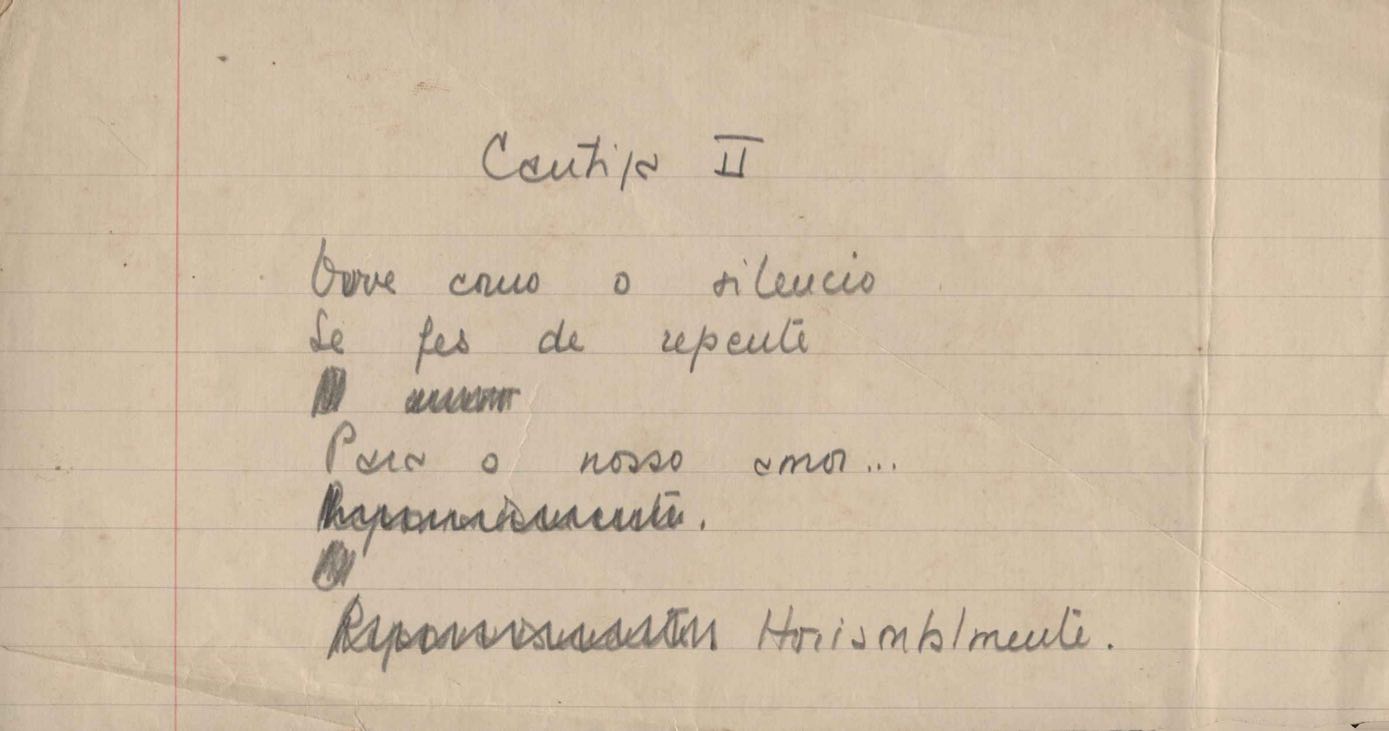 Cantiga II
Ouve como o silencio
Se fes de repente
Para o nosso amor...
Horisontalmente.